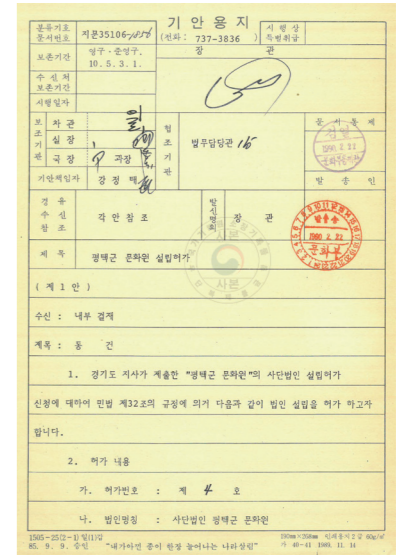 기 안 용 지
분류기호 문서번호
지문35106-1856
(전화: 737-3836 )
시 행 상 특별취급
보존기간
영구·준영구.
10. 5. 3. 1.
장 관
수 신 처 보존기간
시행일자
보조기관
차 관
실 장
국 장
과장
협조기관
법무담당관
문 서 통 제
검열
1990. 2. 22
기안책임자
강 정 태
발 송 인
경 유 수 신 참 조
각 안 참 조
발신명의
장 관
발송
1990 2. 22
문화부
제 목
평택군 문화원 설립허가
사본
( 제 1 안 )
수신 : 내부 결재
제목 : 동 건
1. 경기도 지사가 제출한 "평택군 문화원"의 사단법인 설립허가
신청에 대하여 민법 제32조의 규정에 의거 다음과 같이 법인 설립을 허가 하고자
합니다.
2. 허가 내용
가. 허가번호 : 제 4 호
나. 법인명칭 : 사단법인 평택군 문화원
1505-25(2-1) 일(1)갑
85. 9. 9. 승인
"내가아낀 종이 한장 늘어나는 나라살림"
190㎜×268㎜ 인쇄용지2급 60g/㎡
가 40-41 1989. 11. 14